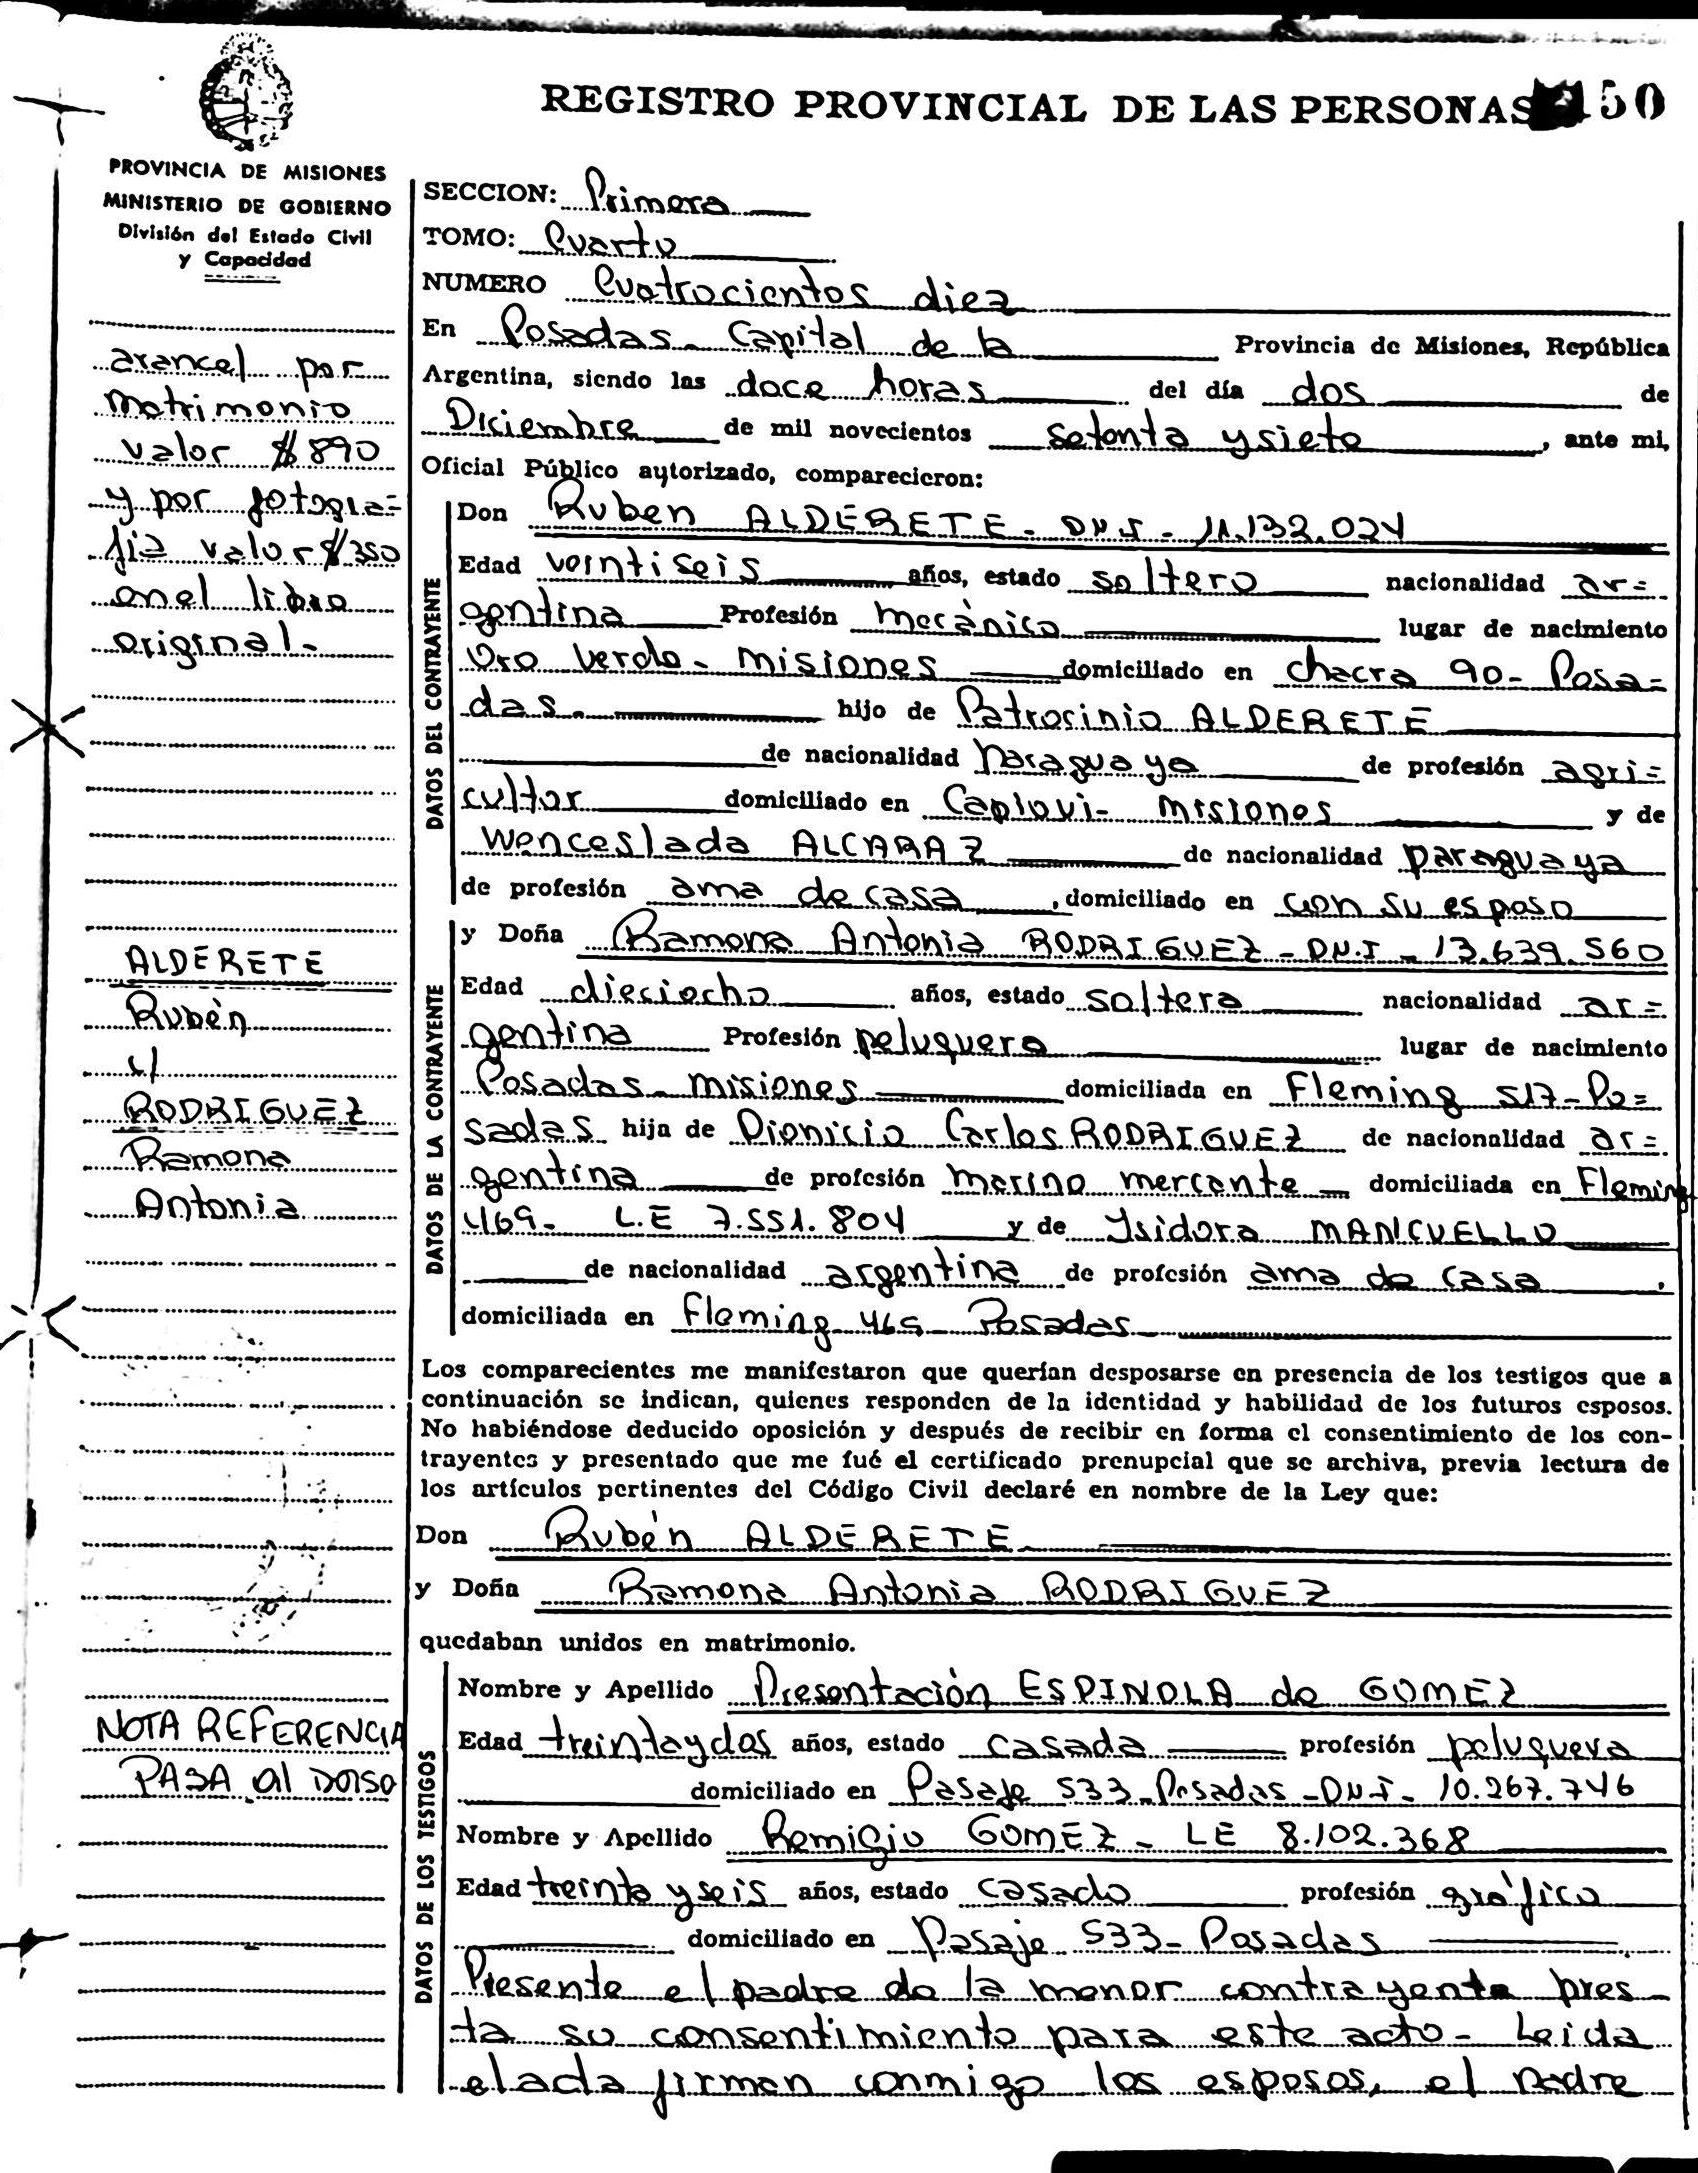 REGISTRO PROVINCIAL DE LAS PERSONAS 150
PROVINCIA DE MISIONES
MINISTERIO DE GOBIERNO
División del Estado Civil
y Capacidad
arancel por
matrimonio
valor $890
y por fotogra=
fia valor $350
en el libro
original-
ALDERETE
Rubén
c/
RODRIGUEZ
Ramona
Antonia
NOTA REFERENCIA
PASA al Dorso
SECCION: Primera
TOMO: Cuarto
NUMERO Cuatrocientos diez
En Posadas- Capital de la Provincia de Misiones, República
Argentina, siendo las doce horas del día dos de
Diciembre de mil novecientos setenta y siete, ante mi,
Oficial Público autorizado, comparecieron:
DATOS DEL CONTRAYENTE
Don Ruben ALDERETE- DNI- 11.132.024
Edad veintiseis años, estado soltero nacionalidad ar=
gentina Profesión mecánico lugar de nacimiento
Oro Verde- Misiones domiciliado en chacra 90- Posa=
das- hijo de Patrocinio ALDERETE
de nacionalidad Paraguaya de profesión agri=
cultor domiciliado en Capiovi- Misiones y de
Wenceslada ALCARAZ de nacionalidad paraguaya
de profesión ama de casa, domiciliado en con su esposo
DATOS DE LA CONTRAYENTE
y Doña Ramona Antonia RODRIGUEZ- DN.I- 13.639.560
Edad dieciocho años, estado soltera nacionalidad ar=
gentina Profesión peluquera lugar de nacimiento
Posadas- Misiones domiciliada en Fleming 517- Po=
sadas hija de Dionicio Carlos RODRIGUEZ de nacionalidad ar=
gentina de profesión marino mercante domiciliada en Fleming
469- L.E 7.551.804 y de Ysidora MANCUELLO
de nacionalidad argentina de profesión ama de casa,
domiciliada en Fleming 469- Posadas-
Los comparecientes me manifestaron que querían desposarse en presencia de los testigos que a
continuación se indican, quienes responden de la identidad y habilidad de los futuros esposos.
No habiéndose deducido oposición y después de recibir en forma el consentimiento de los con-
trayentes y presentado que me fué el certificado prenupcial que se archiva, previa lectura de
los artículos pertinentes del Código Civil declaré en nombre de la Ley que:
Don Rubén ALDERETE-
y Doña Ramona Antonia RODRIGUEZ
quedaban unidos en matrimonio.
DATOS DE LOS TESTIGOS
Nombre y Apellido Presentación ESPINOLA de GOMEZ
Edad treintaydos años, estado casada profesión peluquera
domiciliado en Pasaje 533- Posadas- DNI- 10.267.746
Nombre y Apellido Remigio GOMEZ- LE 8.102.368
Edad treinta y seis años, estado casado profesión gráfico
domiciliado en Pasaje 533- Posadas
Presente el padre de la menor contrayente pres-
ta su consentimiento para este acto- Leida
el acta firman conmigo los esposos, el padre